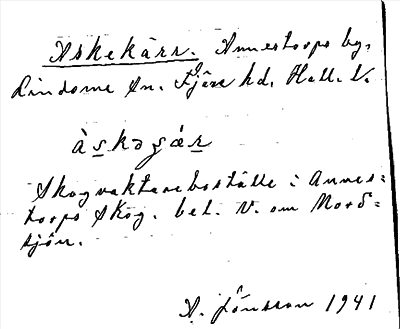 Askekärr. Annestorps by,
Lindome sn. Fjäre hd. Hall. l.
àskəgǽr
Skogvaktareboställe i Annes=
torps skog, bel. V. om Nord=
sjön.
A. Jönsson 1941